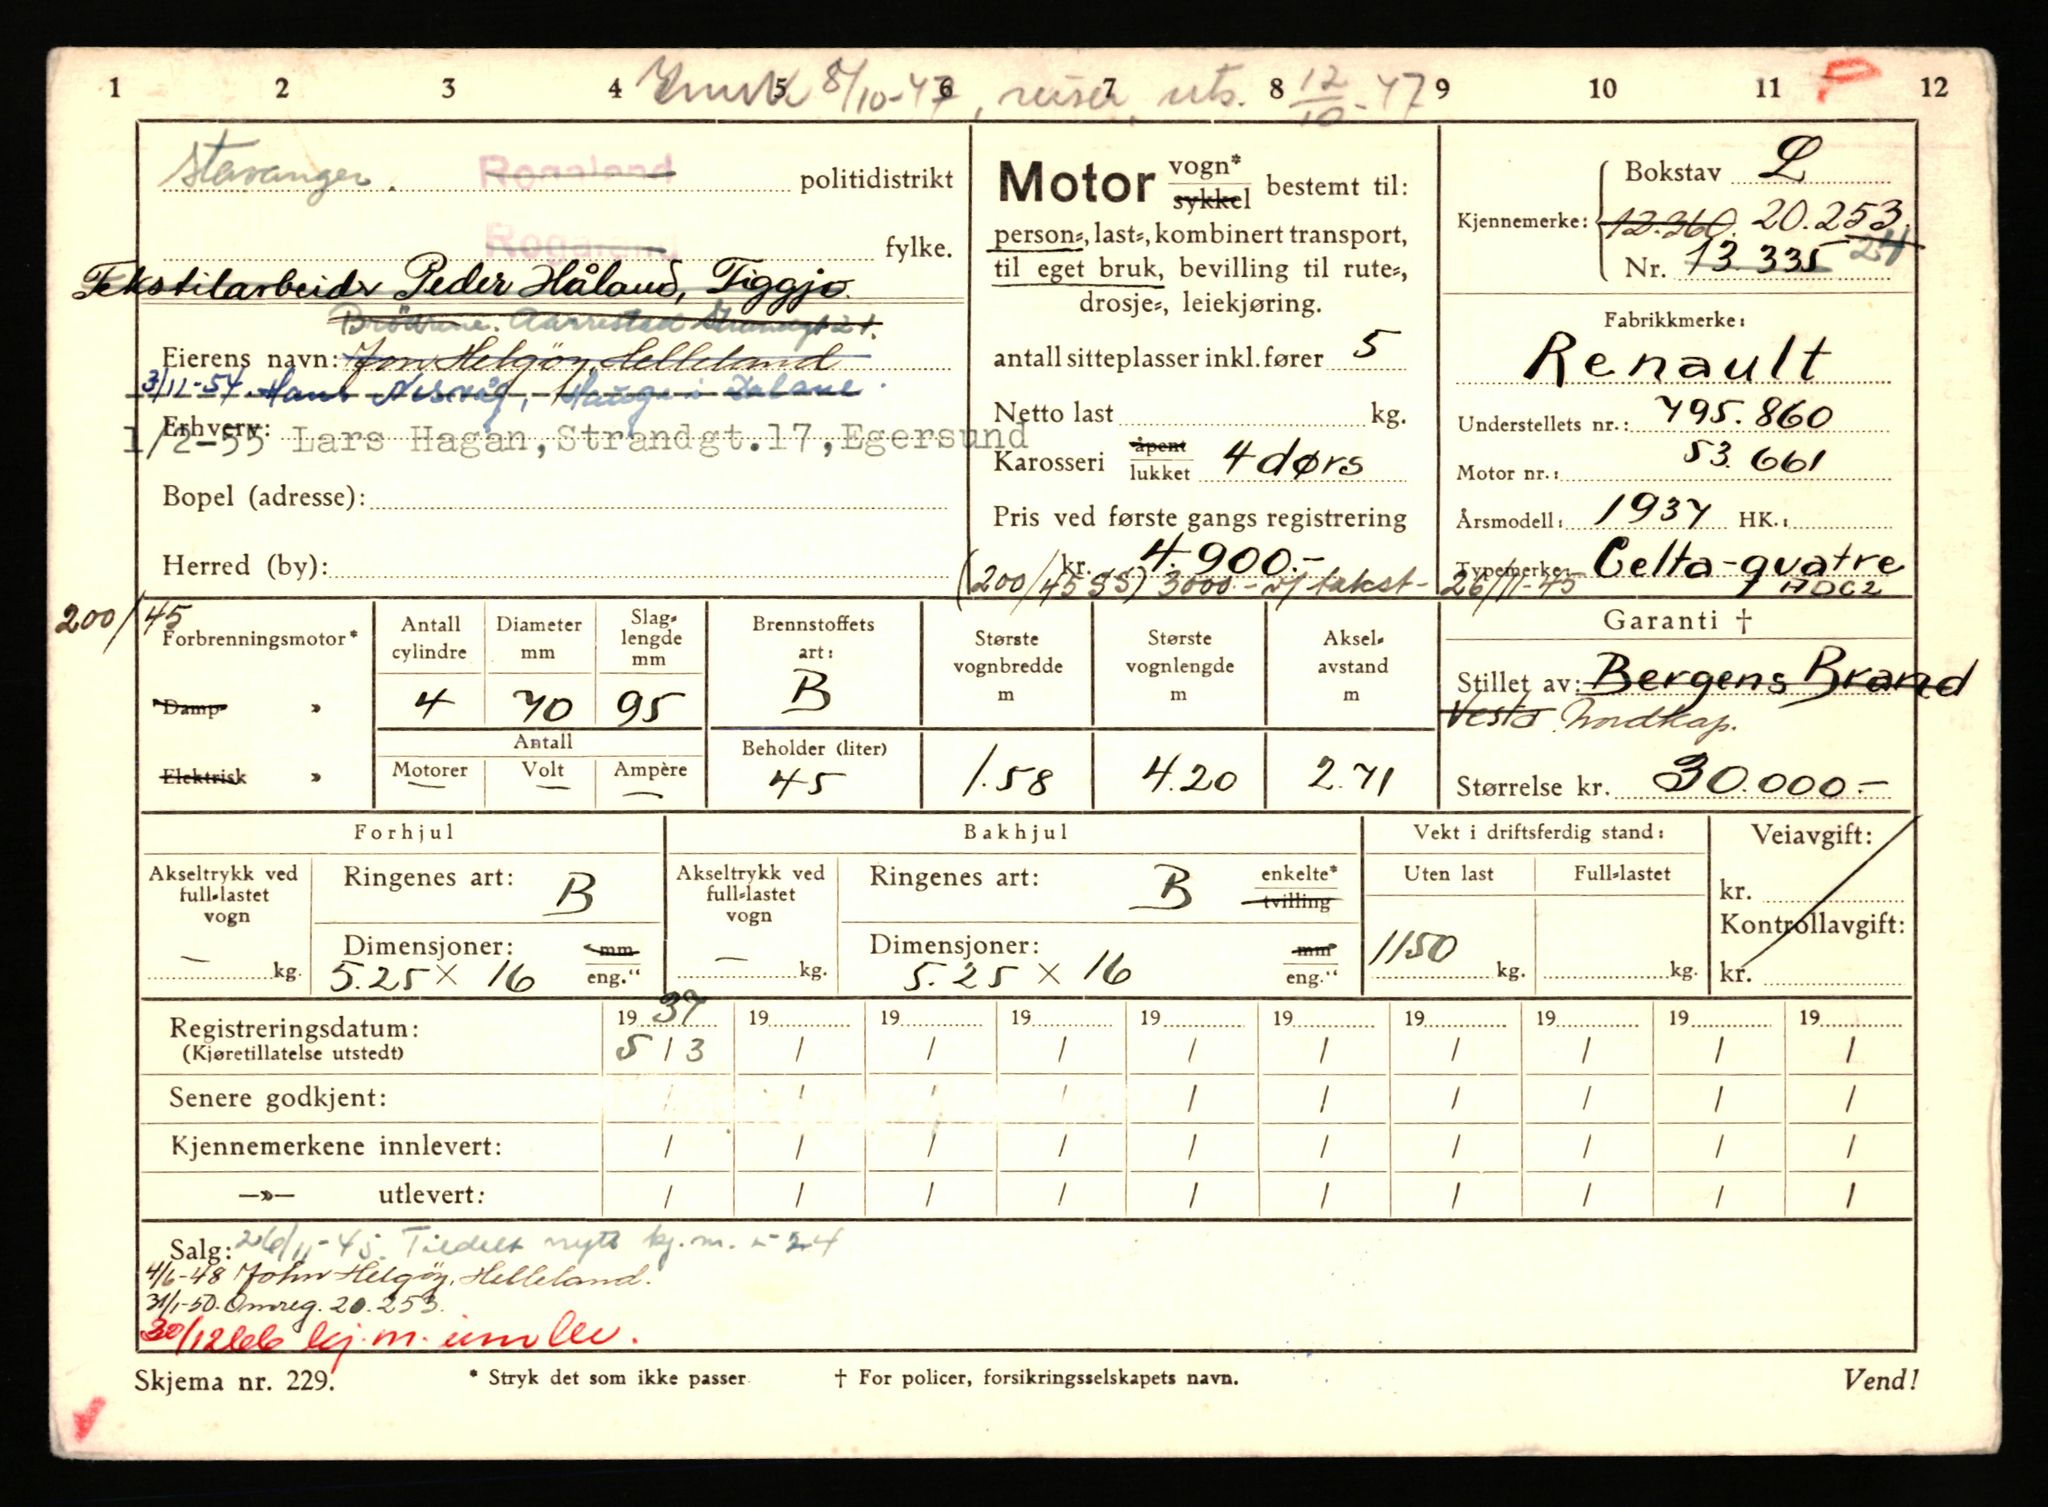 1 2 3 4 5 6 7 8 9 10 11 12
8/10-47, reiser, uts. 12/10-47
Stavanger. Rogaland politidistrikt
Rogaland fylke.
Tekstilarbeider Peder Håland, Figgjo.
Brödrene Aarrestad Strandgt 21.
Eierens navn: Jon Helgöy, Helleland
3/11-54. Hans Hauge i Dalane.
Erhverv:
1/2-55 Lars Hagan, Strandgt.17, Egersund
Bopel (adresse):
Herred (by):
Motor vogn* sykkel bestemt til:
person-, last-, kombinert transport,
til eget bruk, bevilling til rute-,
drosje-, leiekjøring.
antall sitteplasser inkl. fører 5
Netto last kg.
Karosseri åpent lukket 4 dørs
Pris ved første gangs registrering
kr. 4.900.-
(200/45 SS) 3000.- v/ takst - 26/11-45
Kjennemerke: Bokstav L
12.360. 20.253.
Nr. 13.335 24
Fabrikkmerke:
Renault
Understellets nr.: 795.860
Motor nr.: 53.661
Årsmodell: 1937 HK.:
Typemerke: Celta-quatre
ADC2
200/45
Forbrenningsmotor*
Damp »
Elektrisk »
Antall cylindre 4
Diameter mm 70
Slaglengde mm 95
Antall
Motorer — Volt — Ampère —
Brennstoffets art: B
Beholder (liter) 45
Største vognbredde m 1.58
Største vognlengde m 4.20
Akselavstand m 2.71
Garanti †
Stillet av: Bergens Brand
Vesta Nordkap.
Størrelse kr. 30.000.-
Forhjul
Akseltrykk ved full-lastet vogn — kg.
Ringenes art: B
Dimensjoner: mm eng."
5.25 × 16
Bakhjul
Akseltrykk ved full-lastet vogn — kg.
Ringenes art: B enkelte* tvilling
Dimensjoner: mm eng."
5.25 × 16
Vekt i driftsferdig stand:
Uten last 1150 kg.
Full-lastet kg.
Veiavgift:
kr.
Kontrollavgift:
kr.
Registreringsdatum: 19 37 19 19 19 19 19 19 19 19 19
(Kjøretillatelse utstedt) 5/3 / / / / / / / / /
Senere godkjent: / / / / / / / / / /
Kjennemerkene innlevert: / / / / / / / / / /
—»— utlevert: / / / / / / / / / /
Salg: 26/11-45. Tildelt nytt kj.m. L-24
4/6-48 John Helgöy, Helleland.
31/1-50. Omreg. 20.253.
30/12 66 kj.m. innlev.
Skjema nr. 229. * Stryk det som ikke passer † For policer, forsikringsselskapets navn. Vend!